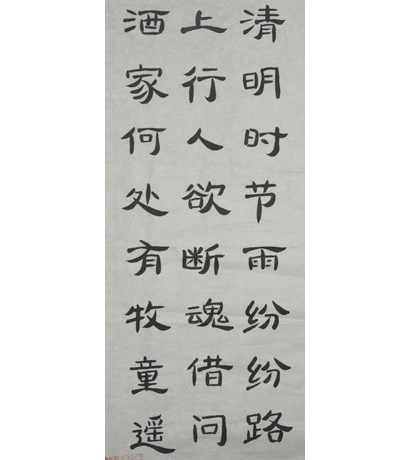 清明时节雨纷纷路
上行人欲断魂借问
酒家何处有牧童遥